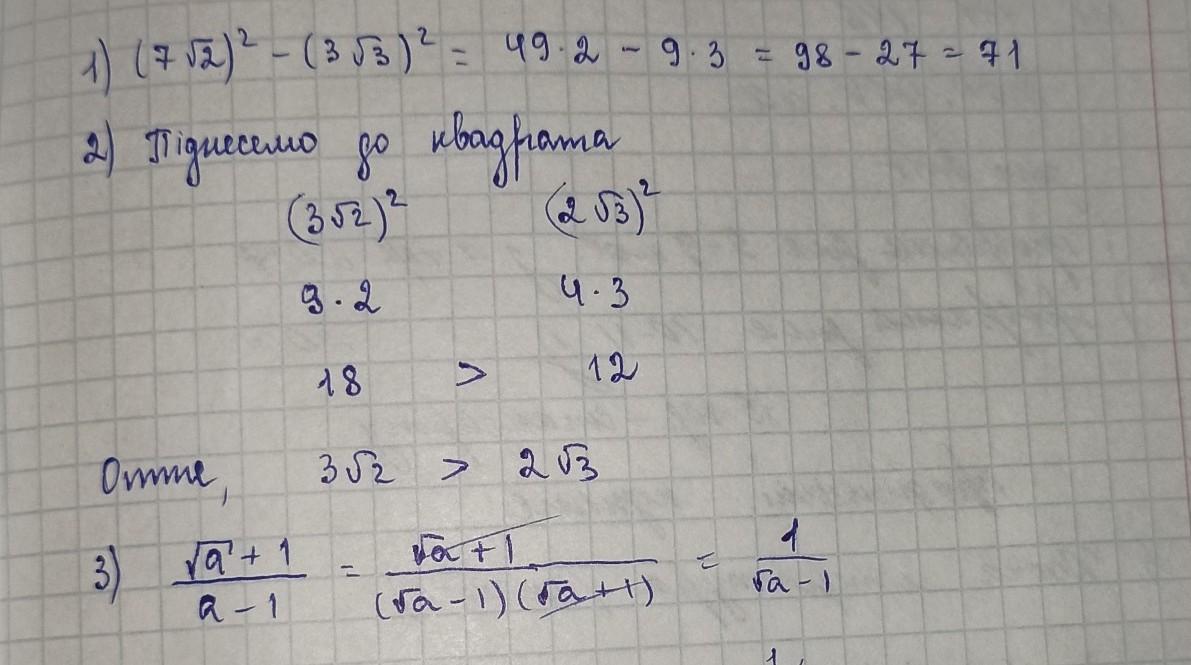 1) (7√2)² - (3√3)² = 49·2 - 9·3 = 98 - 27 = 71
2) Піднесемо до квадрата
(3√2)² (2√3)²
9·2 4·3
18 > 12
Отже, 3√2 > 2√3
3) (√a + 1)/(a - 1) = (√a + 1)/((√a - 1)(√a + 1)) = 1/(√a - 1)